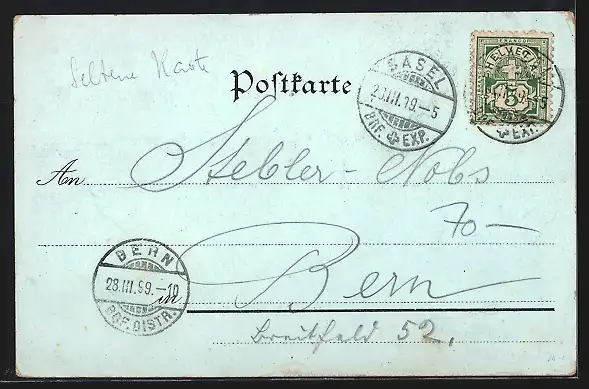 Seltene Karte
Postkarte
BASEL
28.III.99.-5
BRF. EXP.
FRANCO
HELVETIA
5
EXP.
An Stebler-Nobs
70-
BERN
28.III.99.-10
BRF. DISTR.
in Bern
Breitfeld 52.